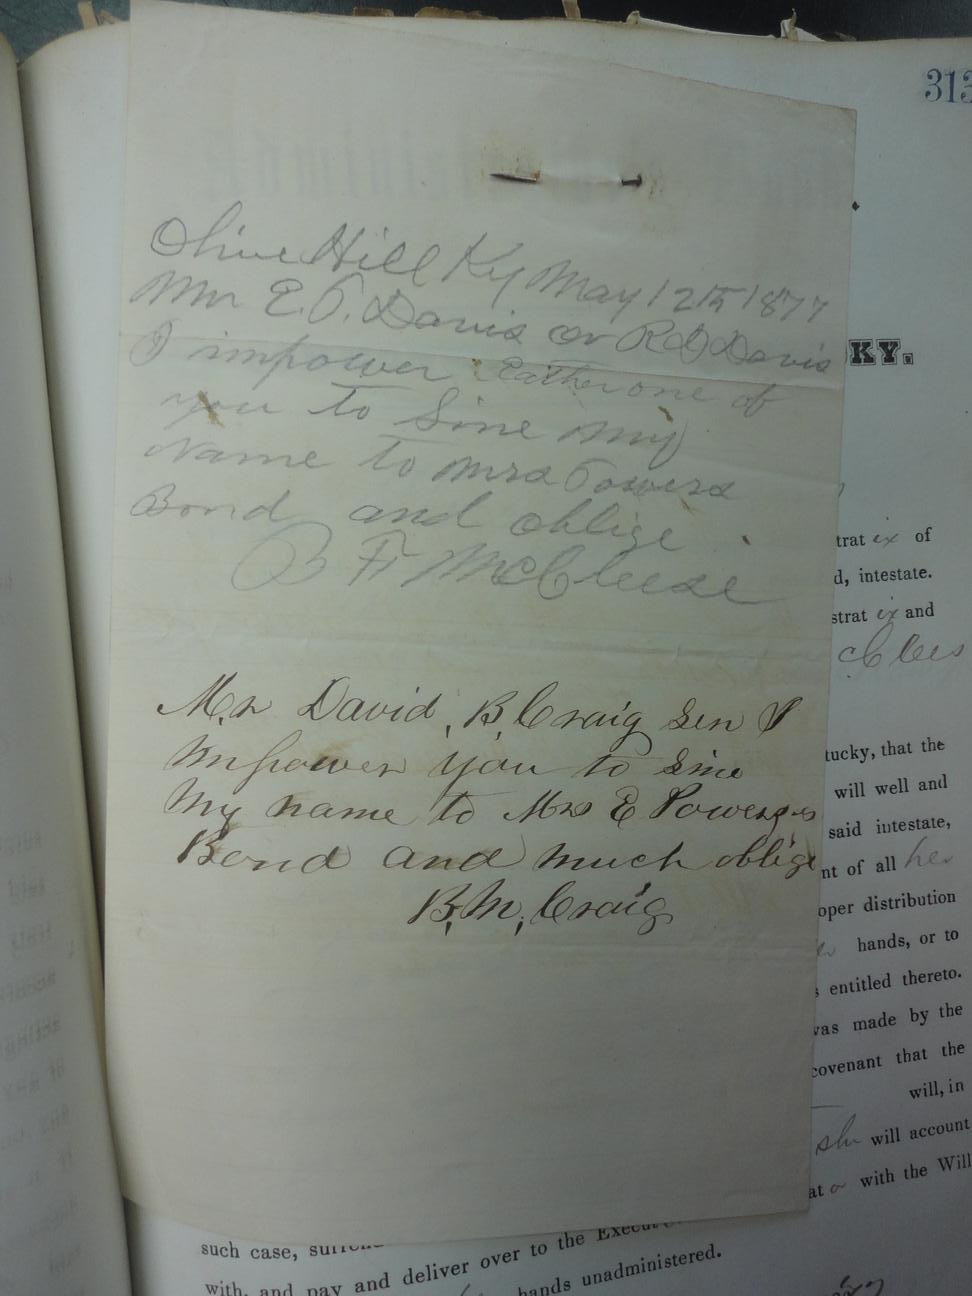 313
Olive Hill Ky May 12th 1877
Mr E. P. Davis or R D Davis
I impower Eather one of
you to Sine my
Name to Mrs Powers
Bond and oblige
B F McCleese
Mr David, B, Craig Sen I
Impower you to Sine
My name to Mrs E Powers
Bond and much oblige
B, M, Craig
KY.
trat ix of
d, intestate.
strat ix and
cClees
tucky, that the
will well and
said intestate,
nt of all her
oper distribution
hands, or to
s entitled thereto.
was made by the
covenant that the
will, in
she will account
at with the Will
such case,
with, and pay and deliver over to the
hands unadministered.